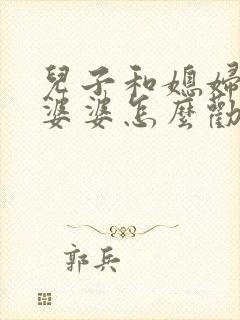 兒子和媳婦
婆婆怎麼勸
郭兵